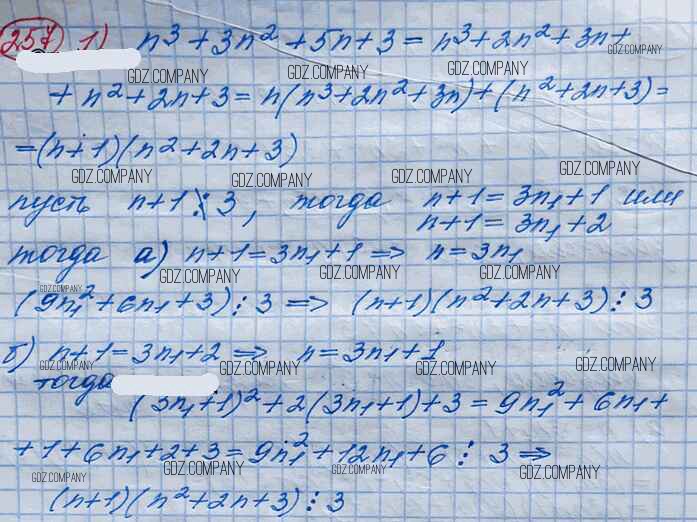 257 1) n³ + 3n² + 5n + 3 = n³ + 2n² + 3n +
GDZ.COMPANY GDZ.COMPANY GDZ.COMPANY GDZ.COMPANY
+ n² + 2n + 3 = n(n³ + 2n² + 3n) + (n² + 2n + 3) =
= (n + 1)(n² + 2n + 3)
GDZ.COMPANY GDZ.COMPANY GDZ.COMPANY GDZ.COMPANY
пусть n + 1 ⋮̸ 3, тогда n + 1 = 3n₁ + 1 или
n + 1 = 3n₁ + 2
тогда а) n + 1 = 3n₁ + 1 => n = 3n₁
GDZ.COMPANY GDZ.COMPANY GDZ.COMPANY GDZ.COMPANY
(9n₁² + 6n₁ + 3) ⋮ 3 => (n + 1)(n² + 2n + 3) ⋮ 3
б) n + 1 = 3n₁ + 2 => n = 3n₁ + 1
GDZ.COMPANY GDZ.COMPANY GDZ.COMPANY GDZ.COMPANY
тогда
(3n₁ + 1)² + 2(3n₁ + 1) + 3 = 9n₁² + 6n₁ +
+ 1 + 6n₁ + 2 + 3 = 9n₁² + 12n₁ + 6 ⋮ 3 =>
GDZ.COMPANY GDZ.COMPANY GDZ.COMPANY GDZ.COMPANY
(n + 1)(n² + 2n + 3) ⋮ 3